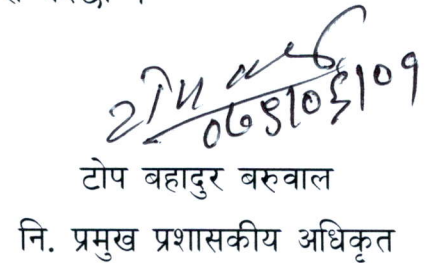 ०७९।०६।०१
टोप बहादुर बरुवाल
नि. प्रमुख प्रशासकीय अधिकृत